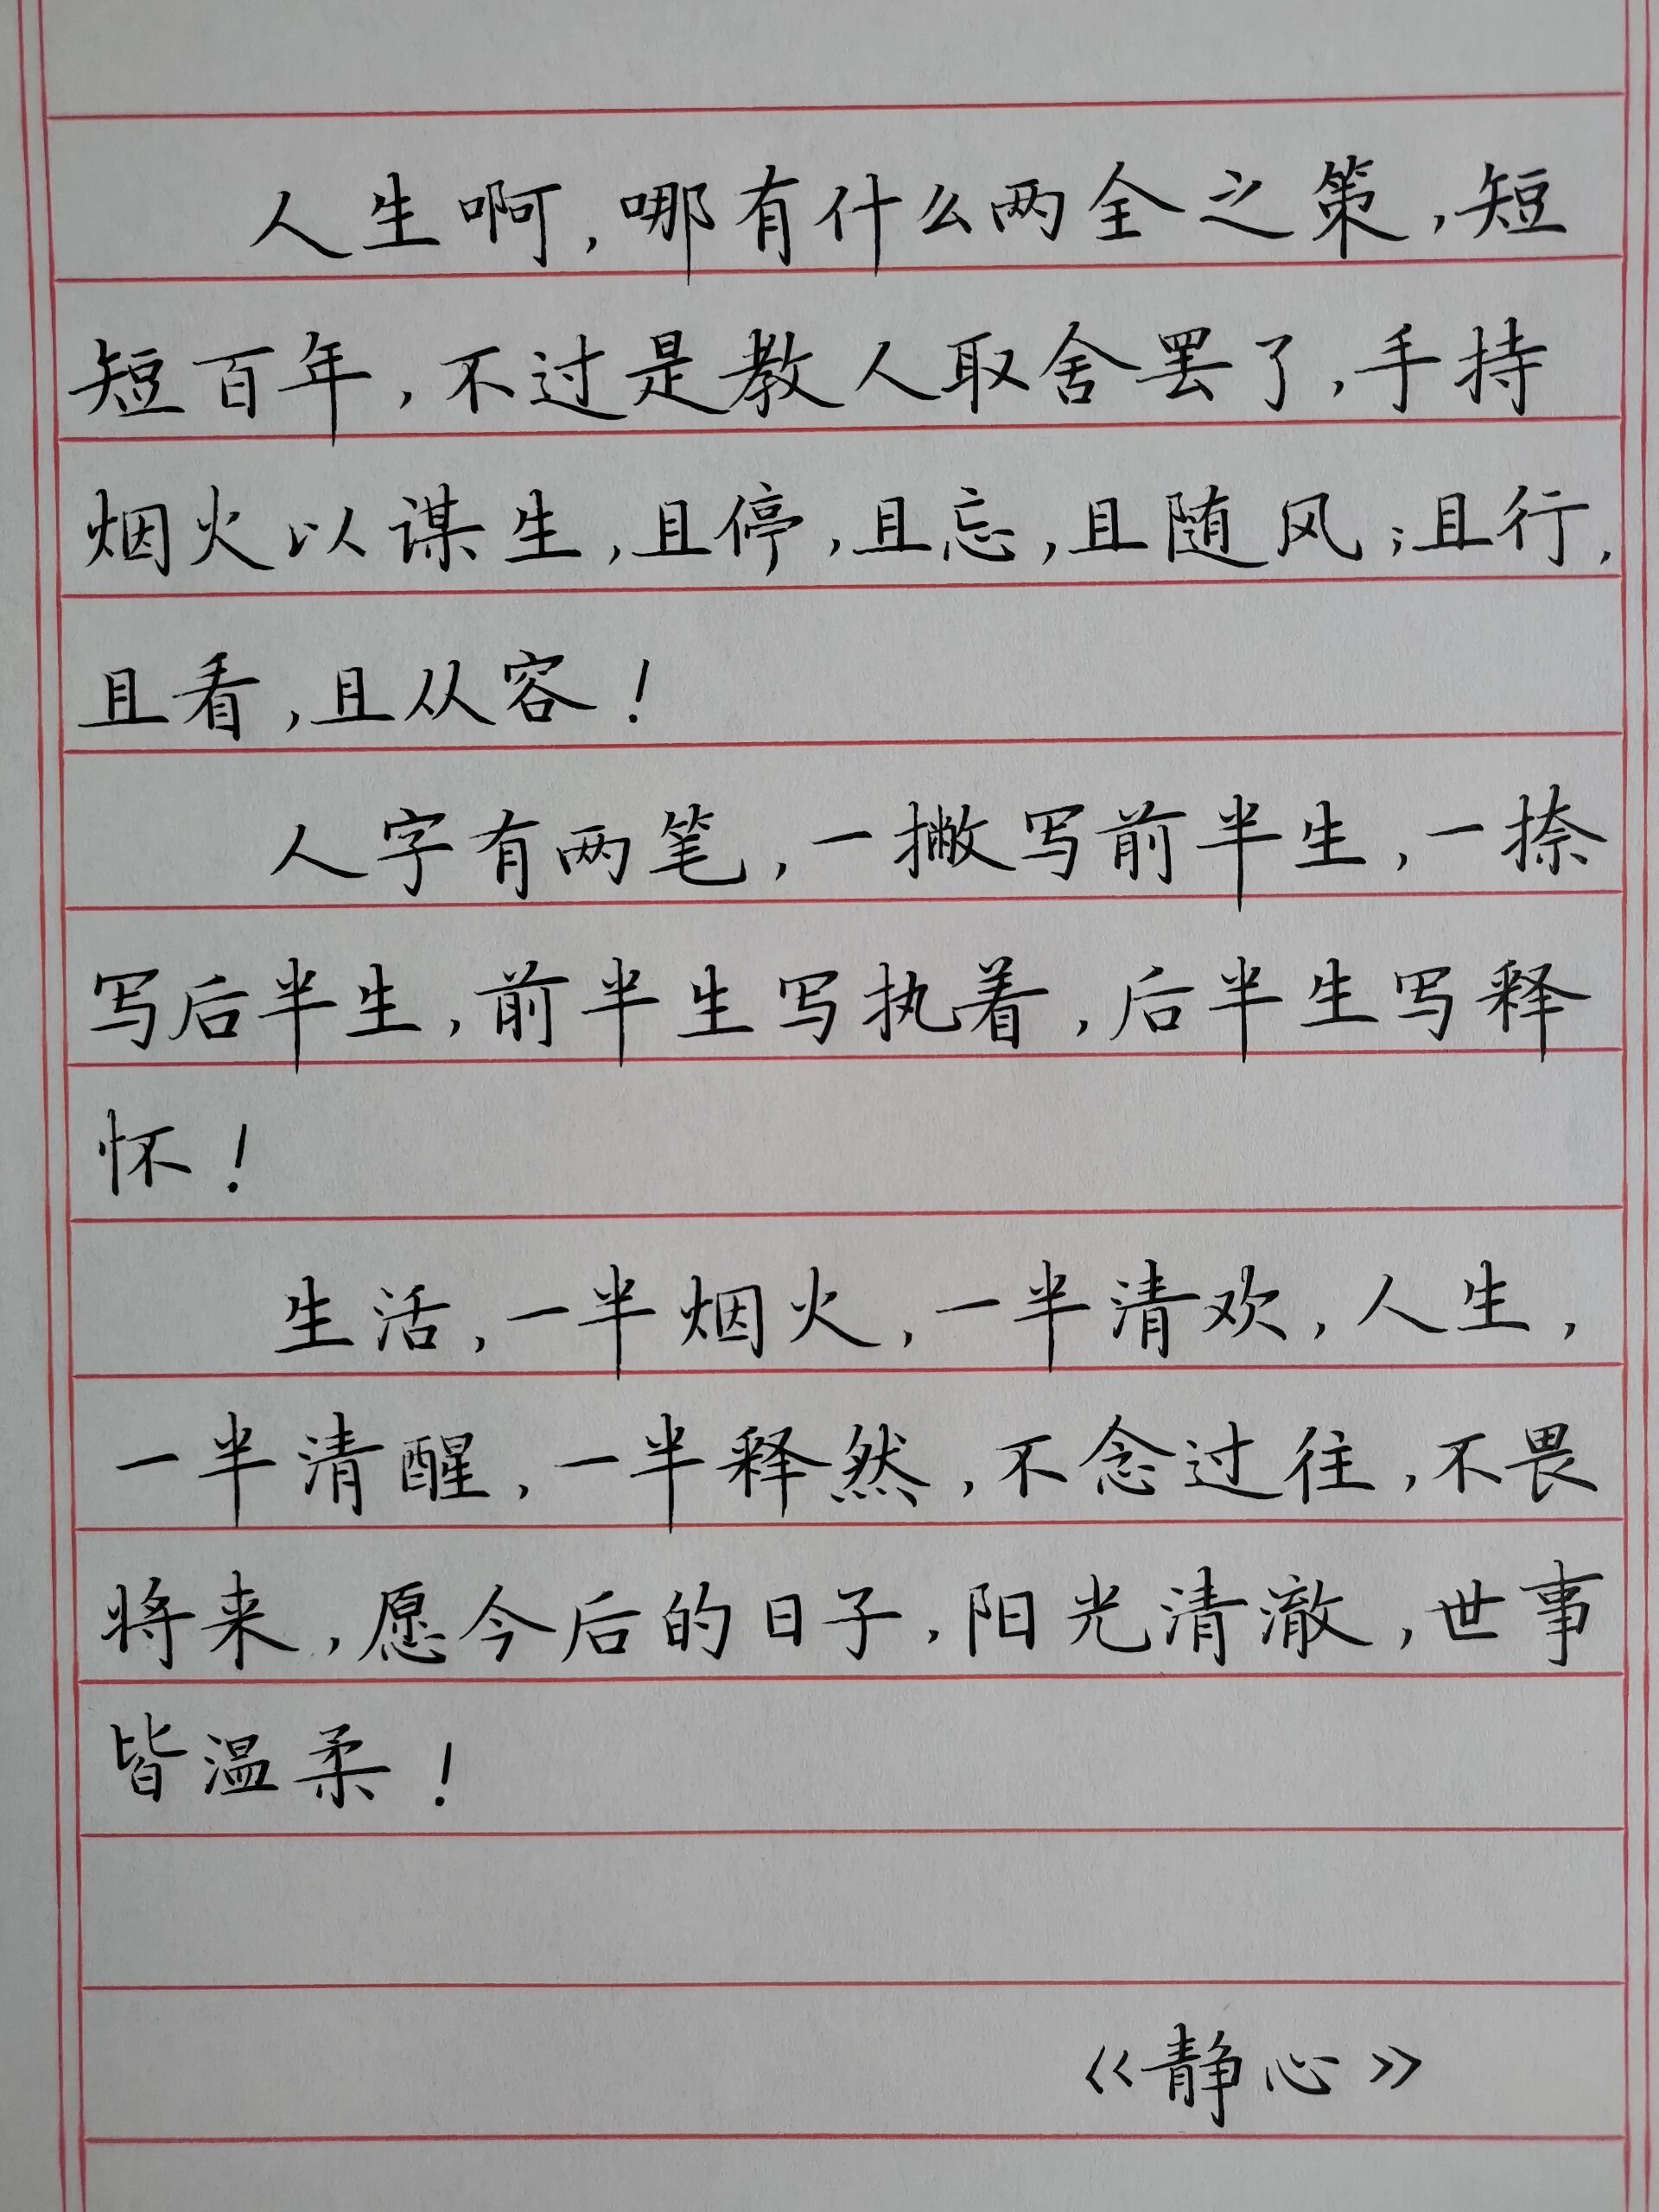 人生啊,哪有什么两全之策,短
短百年,不过是教人取舍罢了,手持
烟火以谋生,且停,且忘,且随风;且行,
且看,且从容!
人字有两笔,一撇写前半生,一捺
写后半生,前半生写执着,后半生写释
怀!
生活,一半烟火,一半清欢,人生,
一半清醒,一半释然,不念过往,不畏
将来,愿今后的日子,阳光清澈,世事
皆温柔!
《静心》